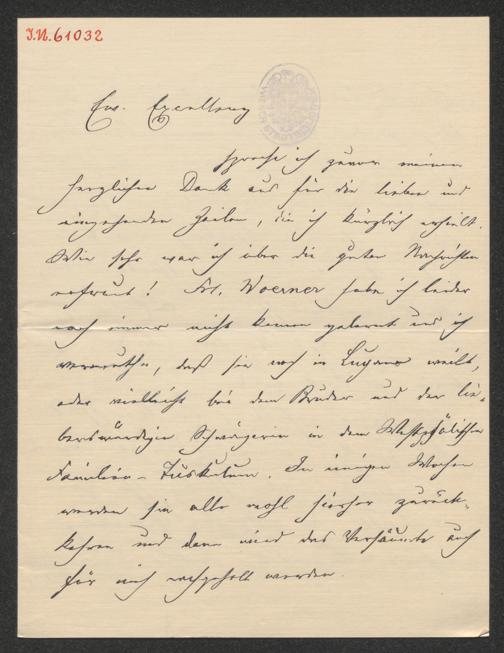 J.N. 61032
Ew. Excellenz
spreche ich zuvor meinen
herzlichen Dank aus für die lieben und
eingehenden Zeilen, die ich kürzlich erhielt.
Wie sehr war ich über die guten Nachrichten
erfreut! Frl. Woerner habe ich leider
noch immer nicht kennen gelernt und ich
vermuthe, daß sie noch in Lugano weilt,
oder vielleicht bei dem Bruder und der lie-
benswürdigen Schwägerin in dem Westphälischen
Familien-Tuskulum. In einigen Wochen
werden sie alle wohl hierher zurück-
kehren und dann wird das Versäumte auch
für mich nachgeholt werden.